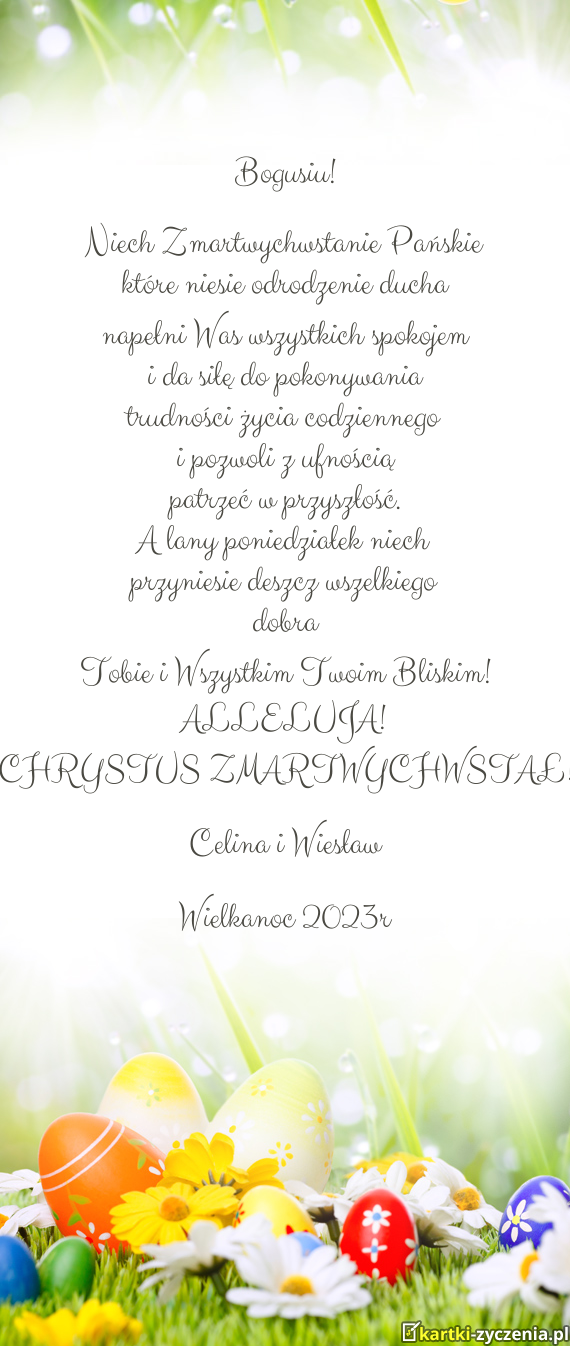 Bogusiu!
Niech Zmartwychwstanie Pańskie
które niesie odrodzenie ducha
napełni Was wszystkich spokojem
i da siłę do pokonywania
trudności życia codziennego
i pozwoli z ufnością
patrzeć w przyszłość.
A lany poniedziałek niech
przyniesie deszcz wszelkiego
dobra
Tobie i Wszystkim Twoim Bliskim!
ALLELUJA!
CHRYSTUS ZMARTWYCHWSTAŁ!
Celina i Wiesław
Wielkanoc 2023r
kartki-zyczenia.pl